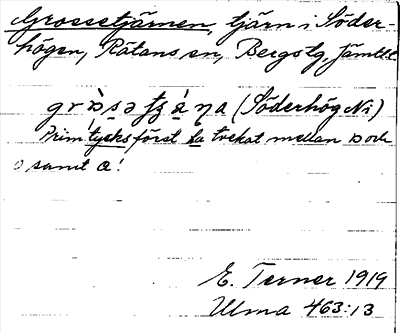 Grossetjärnen, tjärn i Söder-
högen, Rätans sn, Bergs tg, Jämtl.
(Söderhög N:)
Prim. tycks först ha tvekat mellan ɒ och
o samt a!
E. Terner 1919
Ulma 463:13